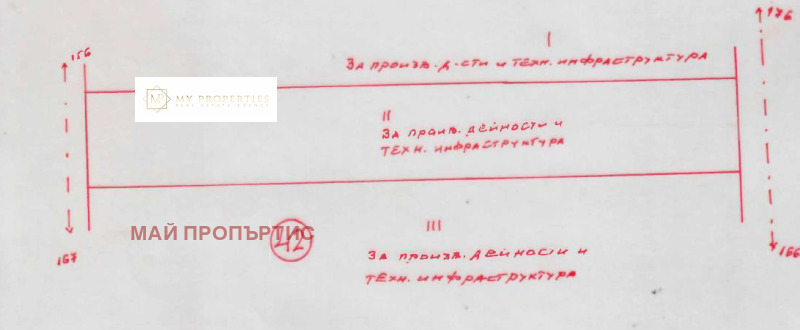 I
За произв. д-сти и техн. инфраструктура
176
156
MP MY PROPERTIES
REAL ESTATE AGENCY
II
За произв. дейности и
техн. инфраструктура
МАЙ ПРОПЪРТИС
42
III
За произв. дейности и
техн. инфраструктура
157
166